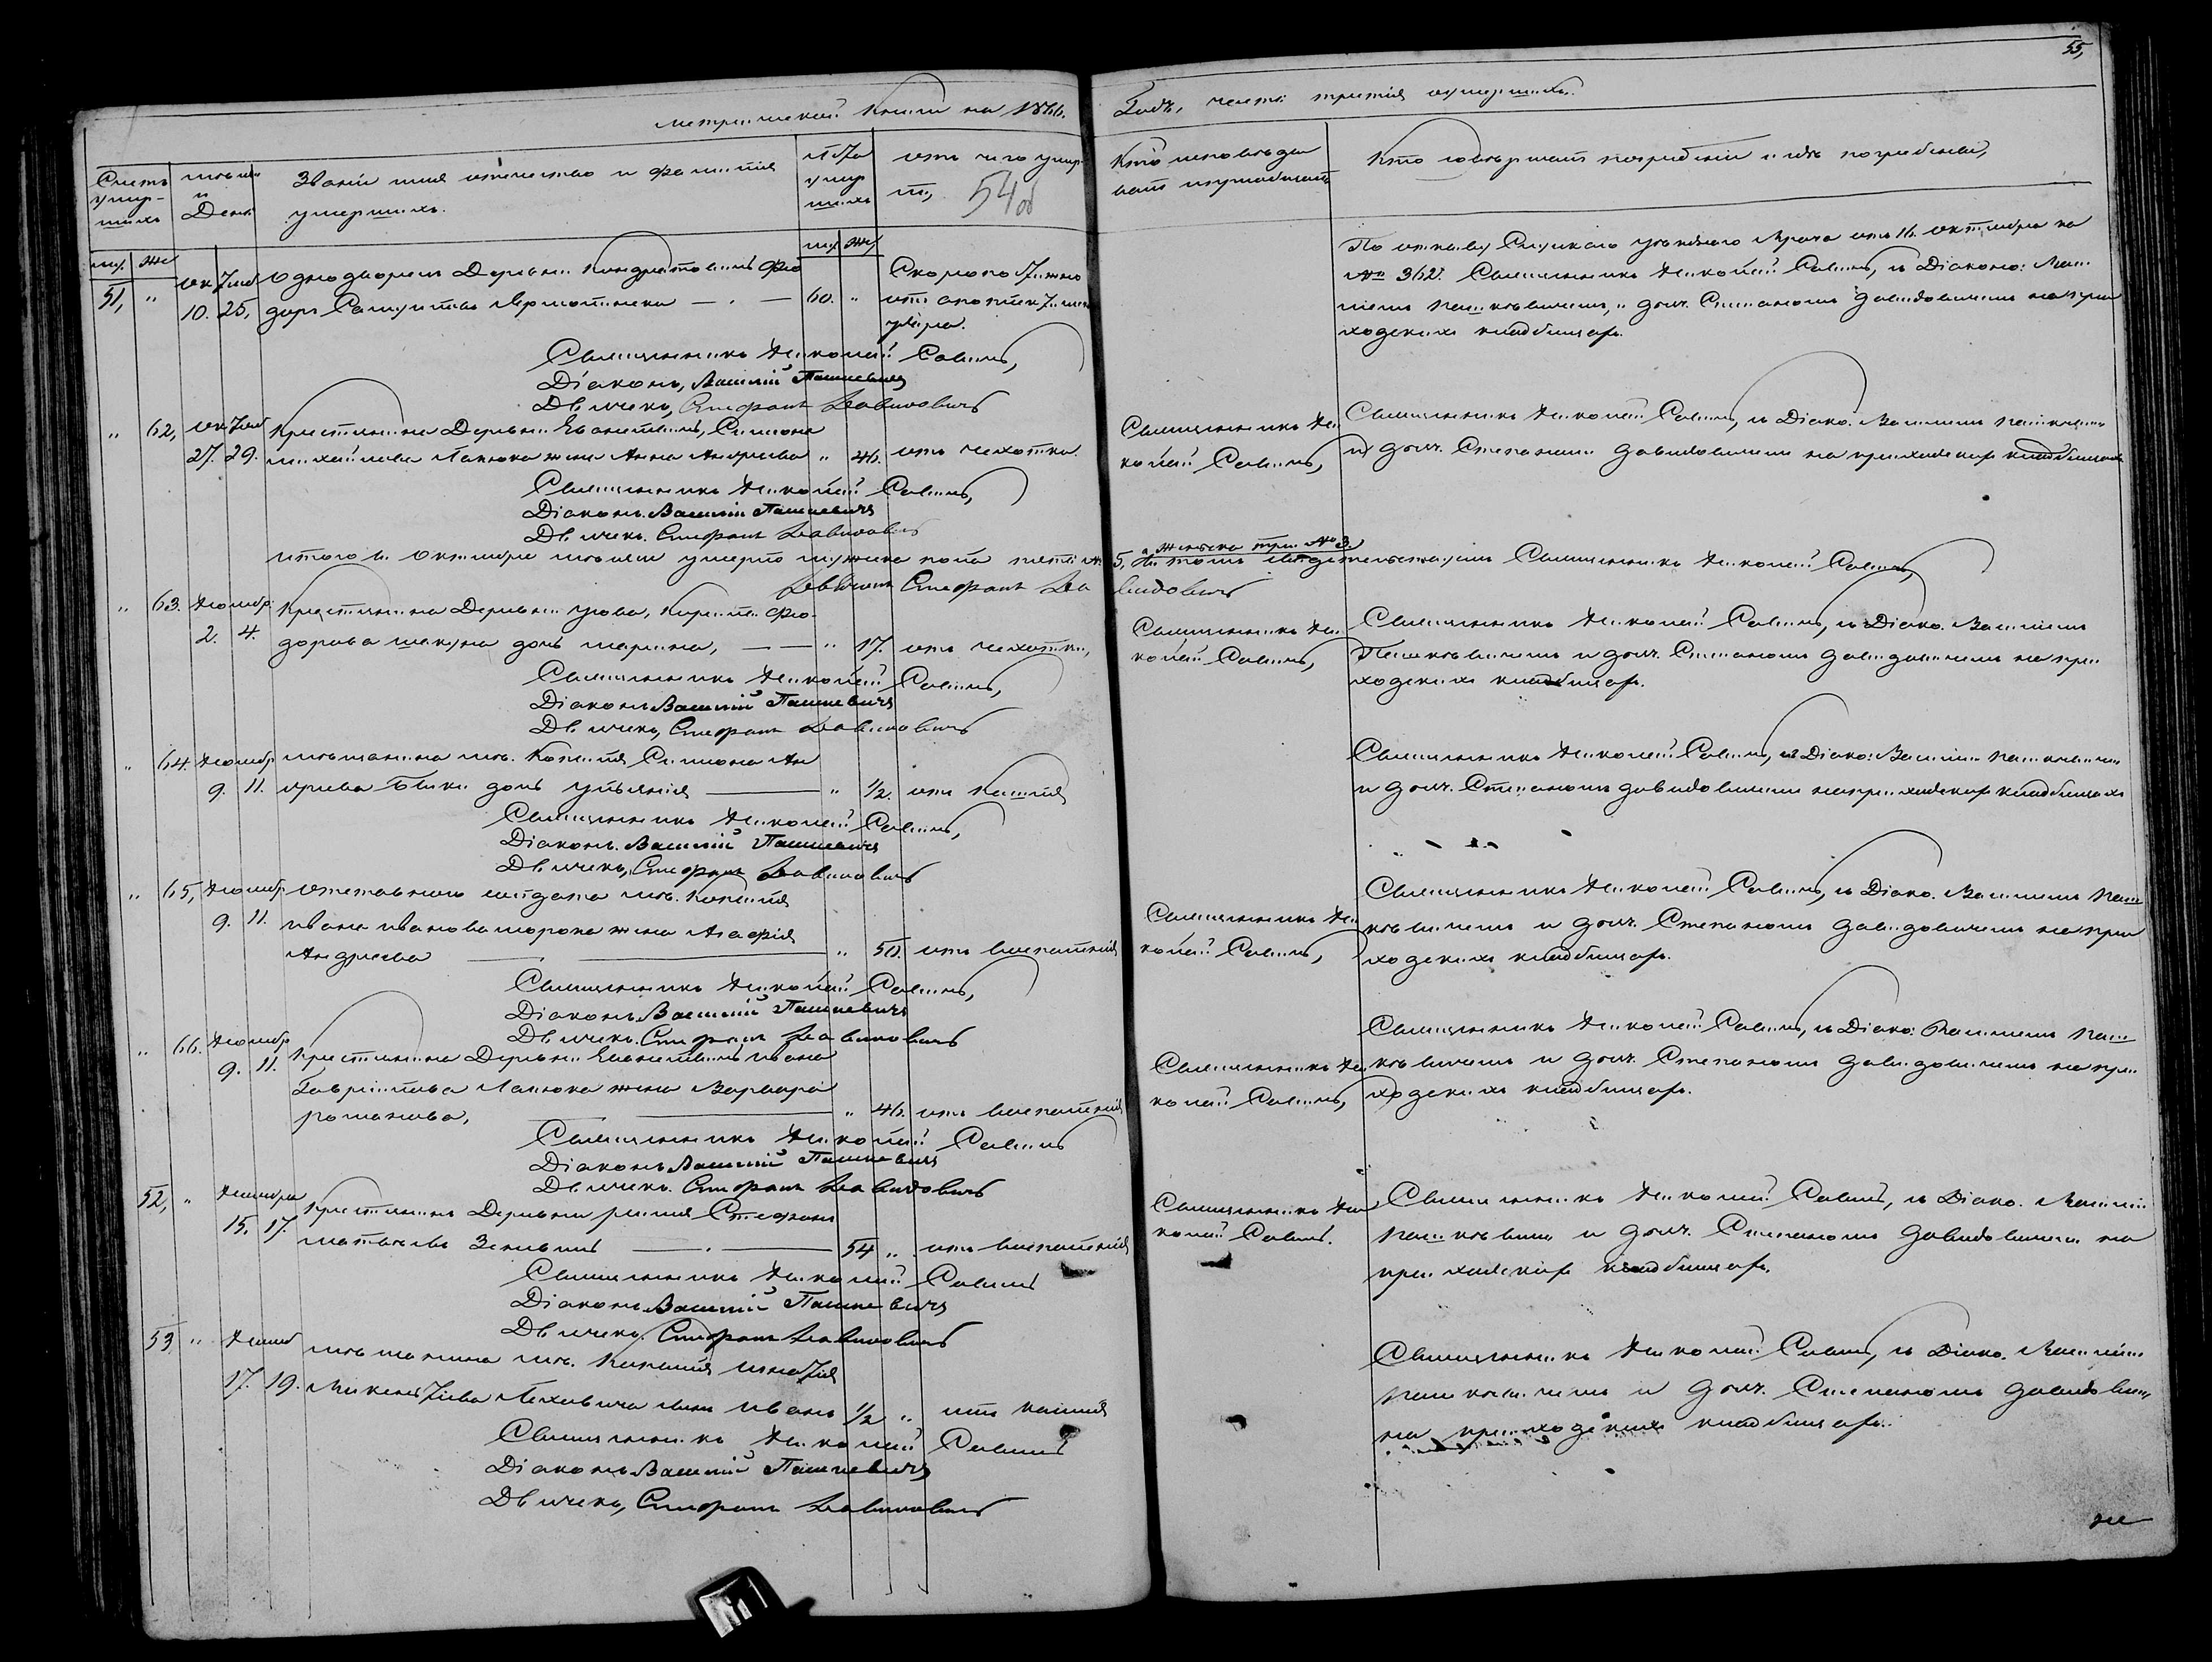 метрической Книги на 1866.
Годъ, часть третія умершихъ.
55,
Счетъ умер-шихъ
мѣсяцъ и День
Званіе имя отчество и фамилія умершихъ.
лѣта умерших
отъ чего умер
54об
Кто исповѣды
валъ и пріобщалъ
Кто совершалъ погребеніе и гдѣ погребены,
му. же
му. же
51, " Октяб
10. 25, Однодворецъ Деревни
60. " Скоропостижно
отъ апоплектическ
удара.
По отзыву Слуцкаго уѣзднаго Врача отъ 16 октября за
№ 3627 Священникъ Николай Савичъ, съ Діакономъ Васи
ліемъ Пашкевичемъ, и дьяч. Степаномъ Давидовичемъ на при
ходскихъ кладбищахъ.
Священникъ Николай Савичъ,
Діаконъ, Василій Пашкевичъ
Дьячекъ, Стефанъ Давидовичъ
" 62, Октяб
27. 29. Крестьянина Деревни Симона
Михайлова жена Анна Андреева " 46. отъ чахотки
Священникъ Ни
колай Савичъ,
Священникъ Николай Савичъ, съ Діако. Василіемъ Пашкевич
и дьяч. Степаномъ Давидовичемъ на приходских кладбищахъ
Священникъ Николай Савичъ,
Діаконъ Василій Пашкевичъ
Дьячекъ. Стефанъ Давидовичъ
итого въ Октябрѣ мѣсяцѣ умерло мужеска пола пять №5, а женска три №3.
въ томъ свидетельствуемъ Священникъ Николай Савичъ,
Дьячекъ Стефанъ Давидовичъ
" 63. Ноябр
2. 4. Крестьянина Деревни
дорова дочь Марина, " 17. отъ чахотки,
Священникъ Ни
колай Савичъ,
Священникъ Николай Савичъ, съ Діако. Василіемъ
Пашкевичемъ и дьяч. Степаномъ Давидовичемъ на при
ходскихъ кладбищахъ.
Священникъ Николай Савичъ,
Діаконъ Василій Пашкевичъ
Дьячекъ, Стефанъ Давидовичъ
" 64. Ноябр
9. 11. мѣщанина мѣс. Копыля Симона Ан
дреева дочь Ульянія " 1/2. отъ кашля
Священникъ Николай Савичъ, съ Діако: Василіем Пашкевичем
и дьяч. Степаномъ Давидовичемъ на приходских кладбищахъ
Священникъ Николай Савичъ,
Діаконъ. Василій Пашкевичъ
Дьячекъ, Стефанъ Давидовичъ
" 65, Ноябр
9. 11. отставнаго солдата мѣс. Копыля
Ивана Иванова жена Агафія
Андреева " 50. отъ воспаленія
Священникъ Ни
колай Савичъ,
Священникъ Николай Савичъ, съ Діако. Василіемъ Паш
кевичемъ и дьяч. Степаномъ Давидовичемъ на при
ходскихъ кладбищахъ.
Священникъ Николай Савичъ,
Діаконъ Василій Пашкевичъ
Дьячекъ. Стефанъ Давидовичъ
" 66. Ноябр
9. 11. Крестьянина Деревни Ивана
Гаврилова жена Варвара
Романова, " 46. отъ воспаленія
Священникъ Ни
колай Савичъ,
Священникъ Николай Савичъ, съ Діако: Василіемъ Паш
кевичемъ и дьяч. Степаномъ Давидовичемъ на при
ходскихъ кладбищахъ.
Священникъ Николай Савичъ
Діаконъ Василій Пашкевичъ
Дьячекъ. Стефанъ Давидовичъ
52, " Ноября
15. 17. Крестьянинъ Деревни Стефанъ
54 " отъ воспаленія
Священникъ Ни
колай Савичъ.
Священникъ Николай Савичъ, съ Діако. Василіем
Пашкевичем и дьяч. Степаномъ Давидовичем на
приходскихъ кладбищахъ.
Священникъ Николай Савичъ
Діаконъ Василій Пашкевичъ
Дьячекъ. Стефанъ Давидовичъ
53. " Нояб
17. 19. мѣщанина мѣс. Копыля Игнатія
Викентіева сынъ Иванъ 1/2 " отъ кашля
Священникъ Николай Савичъ, съ Діако. Василіем
Пашкевичемъ и дьяч. Степаномъ Давидович,
на приходскихъ кладбищахъ.
Священникъ Николай Савичъ
Діаконъ Василій Пашкевичъ
Дьячекъ, Стефанъ Давидовичъ